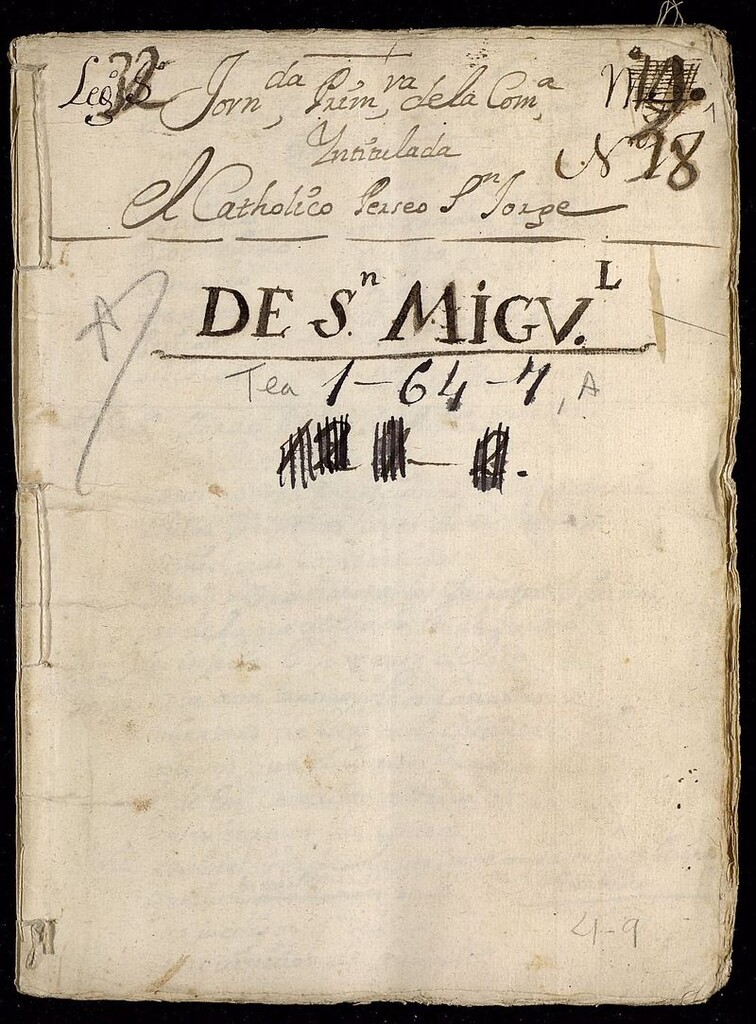 Leg.º 32 Jorn,da Prim,ra de la Com,a
Yntitulada Nº 18
El Catholico Perseo S.n Jorge
DE S.n MiGV.L
A
Tea 1-64-7, A
4-9